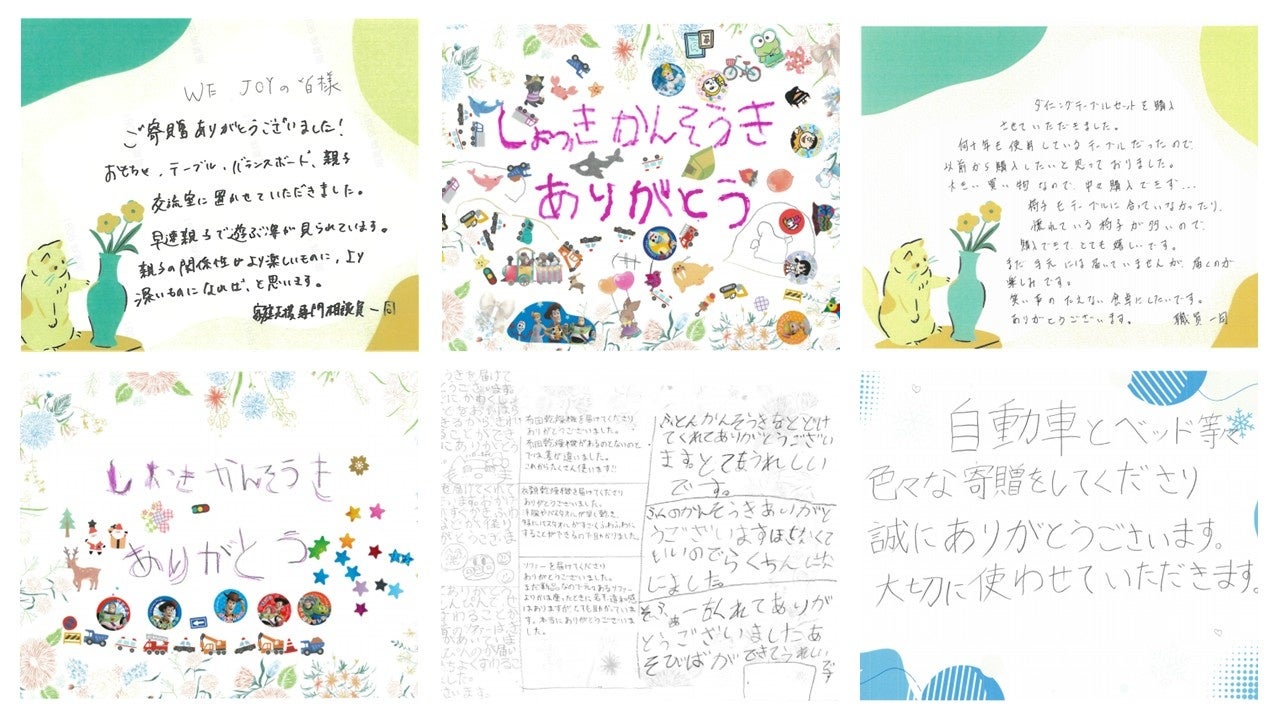 WE JOYの皆様
ご寄贈ありがとうございました!
おもちゃ、テーブル、バランスボード、親子
交流室に置かせていただきました。
早速親子で遊ぶ姿が見られています。
親子の関係性がより楽しいものに、より
深いものになれば、と思います。
家庭支援専門相談員一同
しょっきかんそうき
ありがとう
ダイニングテーブルセットを購入
させていただきました。
何十年も使用しているテーブルだったので、
以前から購入したいと思っておりました。
大きい買い物なので、中々購入できず...
椅子もテーブルに合っていなかったり、
壊れている椅子が多いので、
購入できてとても嬉しいです。
まだ手元には届いていませんが、届くのが
楽しみです。
笑い声のたえない食卓にしたいです。
ありがとうございます。 職員一同
しょっきかんそうき
ありがとう
布団乾燥機を届けてくださり
ありがとうございました。
布団乾燥機があるのとないのと
では、差が違いました。
これからたくさん使います!!
衣類乾燥機を届けてくださり
ありがとうございました。
ソファーを届けてくださり
ありがとうございました。
ふとんかんそうきなどとどけ
てくれてありがとうござい
ます。とてもうれしい
です。
ふとんのかんそうきありがと
うございますほさなくて
いいのでらくちんに
なりました。
そふぁーをくれてありが
とうございましたあ
そびばができてうれしいです
自動車とベッド等々
色々な寄贈をしてくださり
誠にありがとうございます。
大切に使わせていただきます。